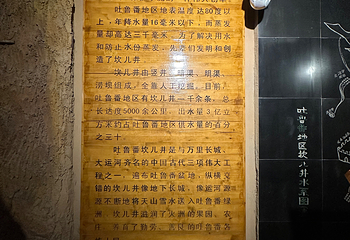 吐鲁番地区地表温度达80度以
上，年降水量16毫米以下，而蒸发
量却高达三千毫米。为了解决用水
和防止水份蒸发，先辈们发明和创
造了坎儿井
坎儿井由竖井、暗渠、明渠、
涝坝组成，全靠人工挖掘。目前，
吐鲁番地区有坎儿井一千余条，总
长达度5000余公里，出水量3亿立
方米约占吐鲁番地区供水量的百分
之三十。
坎儿井是与万里长城、
大运河齐名的中国古代三项伟大工
程之一。遍布吐鲁番盆地，纵横交
错的坎儿井像地下长城，像运河源
源不断地将天山雪水送入吐鲁番绿
洲。坎儿井滋润了火洲的果园、农
吐鲁番地区坎儿井水系图